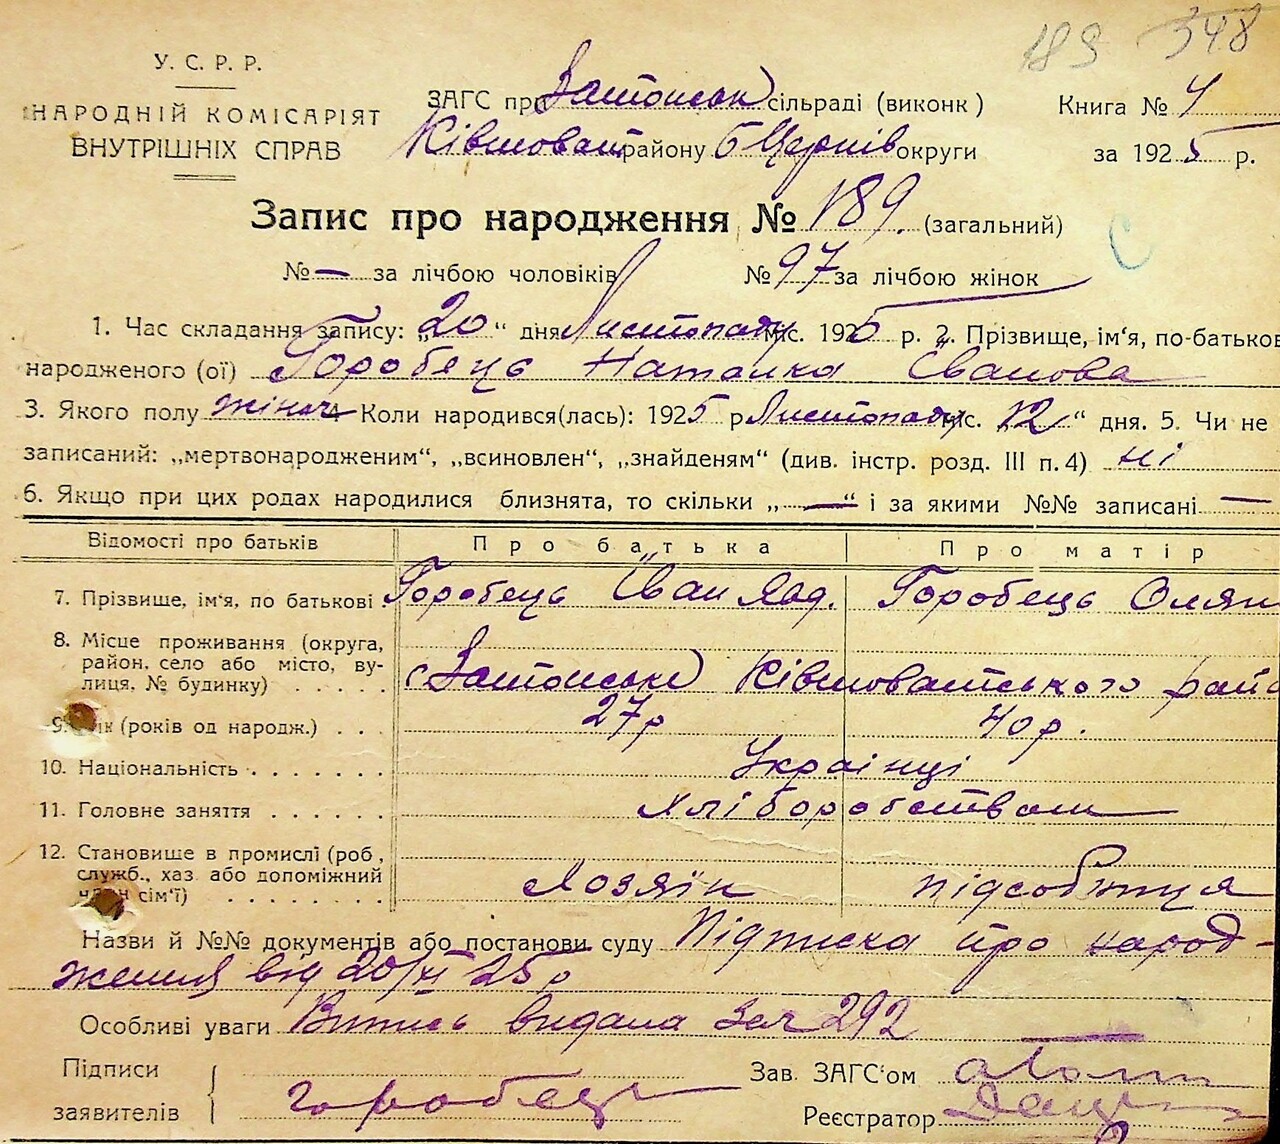 189 348
У. С. Р. Р.
НАРОДНІЙ КОМІСАРІЯТ
ВНУТРІШНІХ СПРАВ
ЗАГС при сільраді (виконк)
Книга № 4
району БЦерків округи
за 1925 р.
Запис про народження № 189. (загальний)
№ — за лічбою чоловіків № 97 за лічбою жінок
1. Час складання запису: „20“ дня Листопаду міс. 1925 р. 2. Прізвище, ім‘я, по-батьков
народженого (ої) Горобець Наталка Іванова
3. Якого полу жіноч 4 Коли народився(лась): 1925 р Листопаду міс. „12“ дня. 5. Чи не
записаний: „мертвонародженим“, „всиновлен“, „знайденям“ (див. інстр. розд. III п. 4) ні
6. Якщо при цих родах народилися близнята, то скільки „—“ і за якими №№ записані —
Відомості про батьків Про батька Про матір
7. Прізвище, ім‘я, по батькові Горобець Іван Горобець Олян
8. Місце проживання (округа,
район, село або місто, ву-
лиця, № будинку) с Ківшоватського рай
9. (років од народж.) 27р 40р.
10. Національність Українці
11. Головне заняття Хліборобством
12. Становище в промислі (роб,
служб., хаз або допоміжний
член сім‘ї) Хозяїн
Назви й №№ документів або постанови суду Підписка про народ-
ження від 20/XI 25р
Особливі уваги Випись видана за № 292
Підписи
заявителів Горобец
Зав. ЗАГС‘ом
Реєстратор